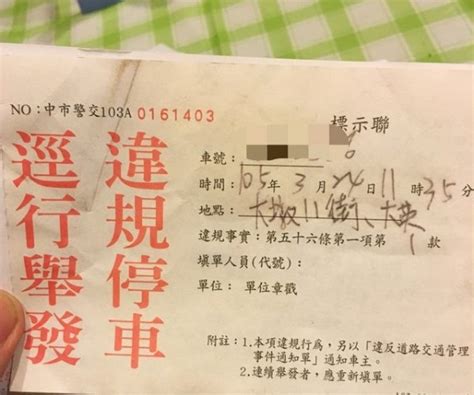 NO：中市警交103A 0161403
標示聯
違規停車
逕行舉發
車號：
時間：105年3月24日11時35分
地點：大墩11街、大英
違規事實：第五十六條第一項第1款
填單人員(代號)：
單位：單位章戳
附註：1.本項違規行為，另以「違反道路交通管理
事件通知單」通知車主。
2.連續舉發者，應重新填單。